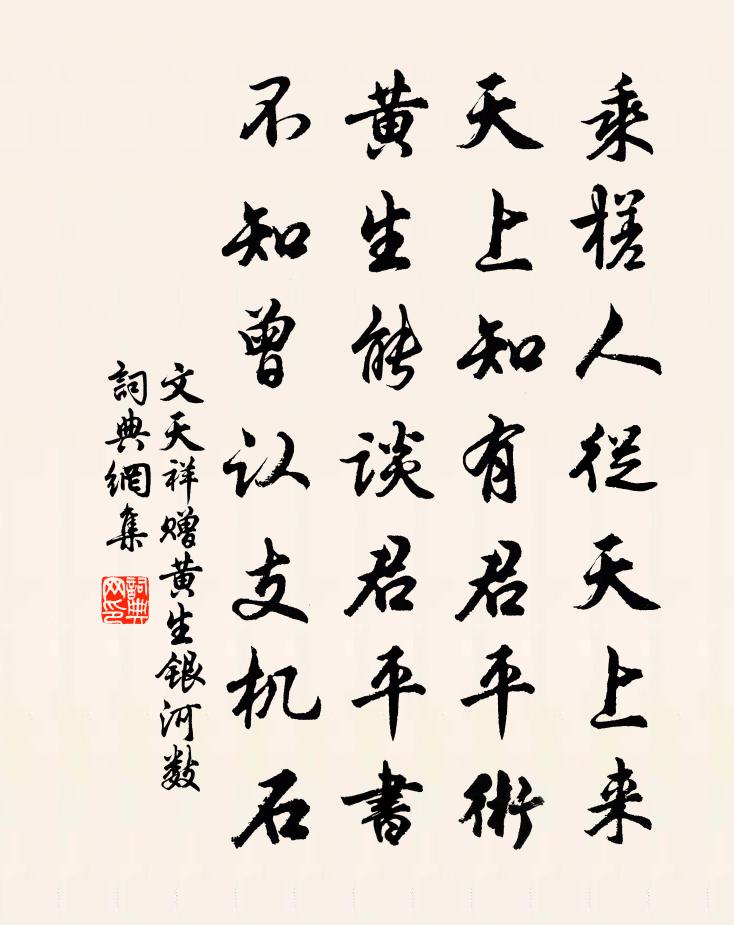 乘槎人従天上来
天上知有君平術
黄生能谈君平書
不知曾认支机石
文天祥赠黄生银河数
詞典網集
詞典
网印